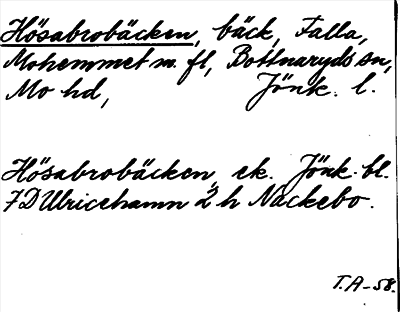 Hösabrobäcken, bäck, Falla,
Mohemmet m. fl, Bottnaryds sn,
Mo hd, Jönk. l.
Hösabrobäcken, ek. Jönk. bl.
7D Ulricehamn 2 h Nackebo.
T.A-58.